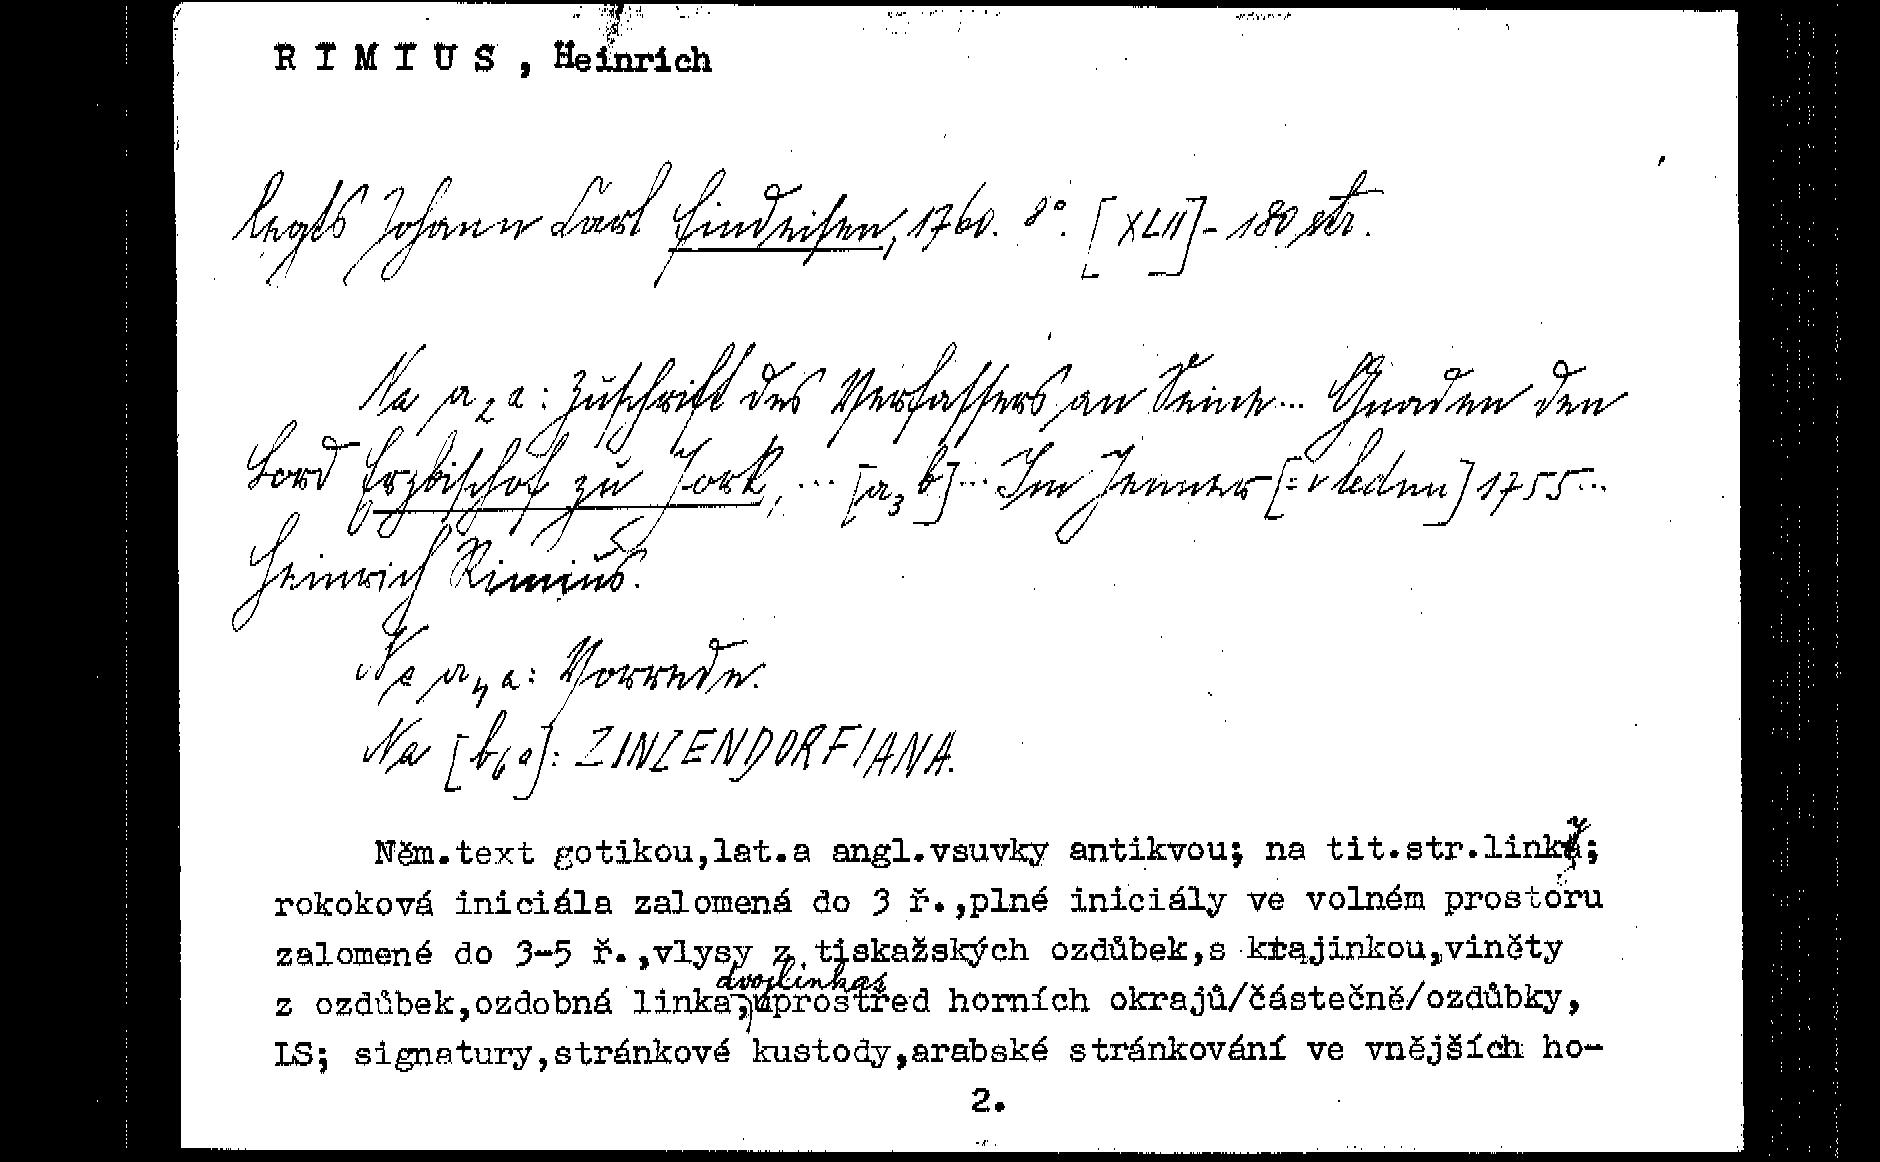 R I M I U S , Heinrich
legts Johann Carl Findeisen, 1760. 8°. [XLII]-180 str.
Na a2a: Zuschrift des Verfassers an Seine... Gnaden den
Lord Erzbischof zu Jork, ... [a3b]... Im Jenner [= v lednu] 1755...
Heinrich Rimius.
Na a4a: Vorrede.
Na [b6a]: ZINZENDORFIANA.
Něm.text gotikou,lat.a angl.vsuvky antikvou; na tit.str.linky;
rokoková iniciála zalomená do 3 ř.,plné iniciály ve volném prostoru
zalomené do 3-5 ř.,vlysy z tiskažských ozdůbek,s krajinkou,viněty
dvojlinka;
z ozdůbek,ozdobná linka,uprostřed horních okrajů/částečně/ozdůbky,
LS; signatury,stránkové kustody,arabské stránkování ve vnějších ho-
2.